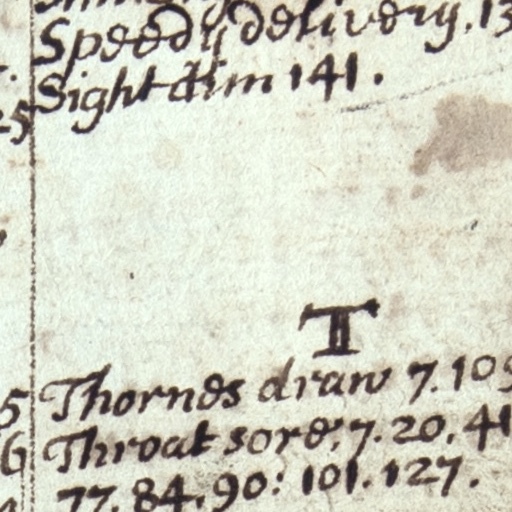 Speedy delivery. 13
Sight dim 141.
T
Thornes draw 7. 109
Throat sore, 7. 20. 41
77. 84. 90: 101. 127.